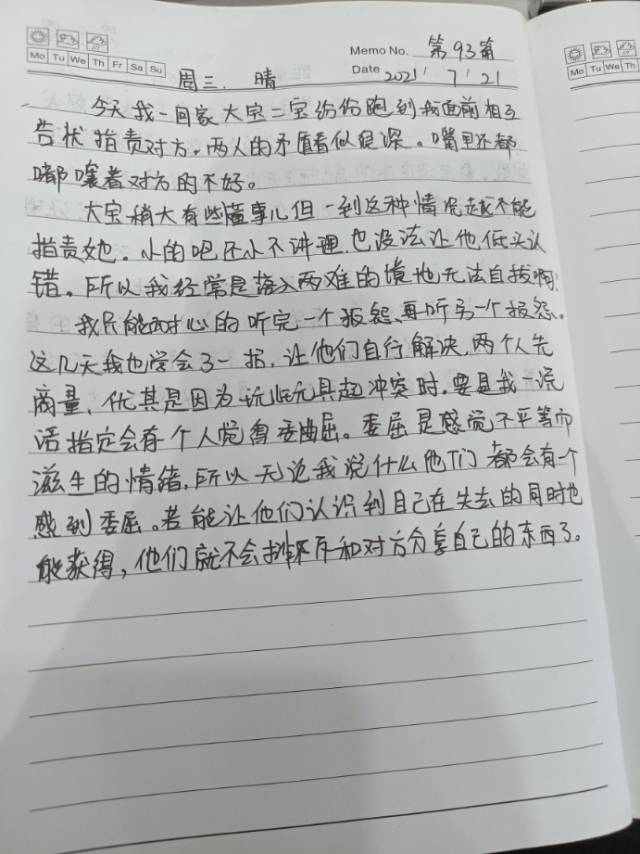 Memo No. 第93篇
Mo Tu We Th Fr Sa Su
Date 2021' 7' 21
周三. 晴
Mo Tu We Th
今天我一回家大宝二宝纷纷跑到我面前相互
告状指责对方,两人的矛盾看似很深。嘴里还都
嘟囔着对方的不好。
大宝稍大有些懂事儿但一到这种情况也不能
指责她。小的吧还小不讲理也没法让他低头认
错。所以我经常是落入两难的境地无法自拔啊!
我只能耐心的听完一个报怨、再听另一个报怨。
这几天我也学会了一招,让他们自行解决,两个人先
商量、优其是因为玩些玩具起冲突时,要是我一说
话指定会有个人觉得委曲屈。委屈是感觉不平等而
滋生的情绪,所以无论我说什么他们都会有一个
感到委屈。若能让他们认识到自己在失去的同时也
能获得,他们就不会排斥和对方分享自己的东西了。